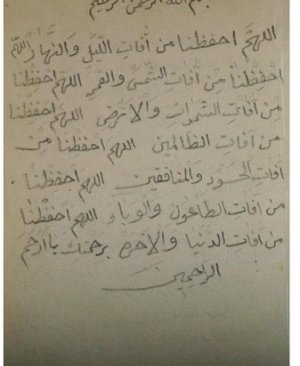 بسم الله الرحمن الرحيم
اللهم احفظنا من آفات الليل والنهار اللهم
احفظنا من آفات الشمس والقمر اللهم احفظنا
من آفات السموات والارض اللهم احفظنا
من آفات الظالمين اللهم احفظنا من
آفات الحسود والمنافقين اللهم احفظنا
من آفات الطاعون والوباء اللهم احفظنا
من آفات الدنيا والآخرة برحمتك يا ارحم
الراحمين